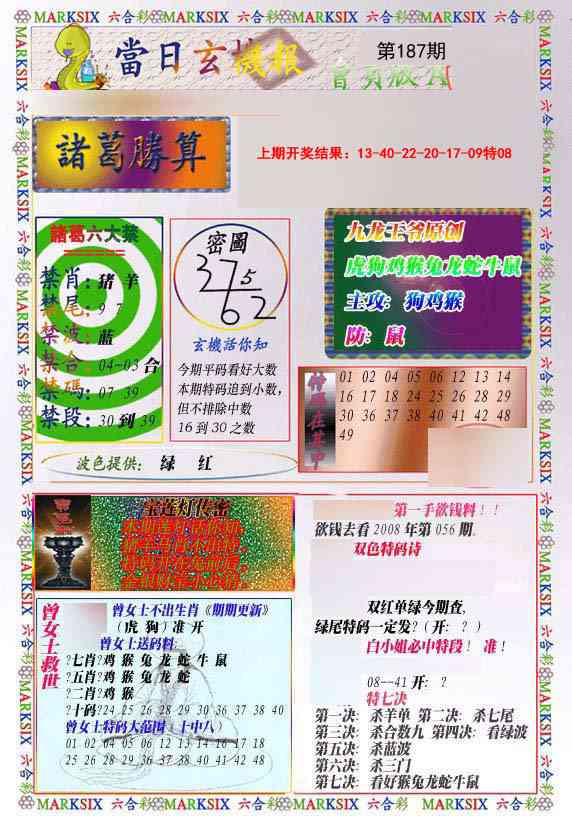 MARKSIX 六合彩 MARKSIX 六合彩 MARKSIX 六合彩 MARKSIX
當日玄機报
第187期
諸葛勝算
上期开奖结果：13-40-22-20-17-09特08
諸葛六大禁
======
禁肖：猪 羊
禁尾：9 7
禁波：蓝
禁合：04—03 合
禁碼：07 39
禁段：30 到 39
密圖
375
62
玄機話你知
今期平码看好大数
本期特码追到小数，
但不排除中数
16 到 30 之数
九龙王爷原创
虎狗鸡猴兔龙蛇牛鼠
主攻：狗鸡猴
防：鼠
特碼在其中
01 02 04 05 06 12 13 14
16 17 18 24 25 26 28 29
30 36 37 38 40 41 42 48
49
波色提供：绿 红
宝莲灯传密
曾女士救世
曾女士不出生肖《期期更新》
（虎 狗）准 开
曾女士送码料:
?七肖?鸡 猴 兔 龙 蛇 牛 鼠
?五肖?鸡 猴 兔 龙 蛇
?二肖?鸡 猴
?十码?24 25 26 28 29 30 36 37 38 40
曾女士特码大范围—十中八）
01 02 04 05 06 12 13 14 16 17 18
25 26 28 29 36 37 38 40 41 42 48
第一手欲钱料！！
欲钱去看 2008 年第 056 期.
双色特码诗
双红单绿今期查,
绿尾特码一定发?（开: ? ）
白小姐必中特段！ 准！
08--41 开: ?
特七决
第一决：杀羊单 第二决：杀七尾
第三决：杀合数九 第四决：看绿波
第五决：杀蓝波
第六决：杀三门
第七决：看好猴兔龙蛇牛鼠
MARKSIX 六合彩 MARKSIX 六合彩 MARKSIX 六合彩 MARKSIX